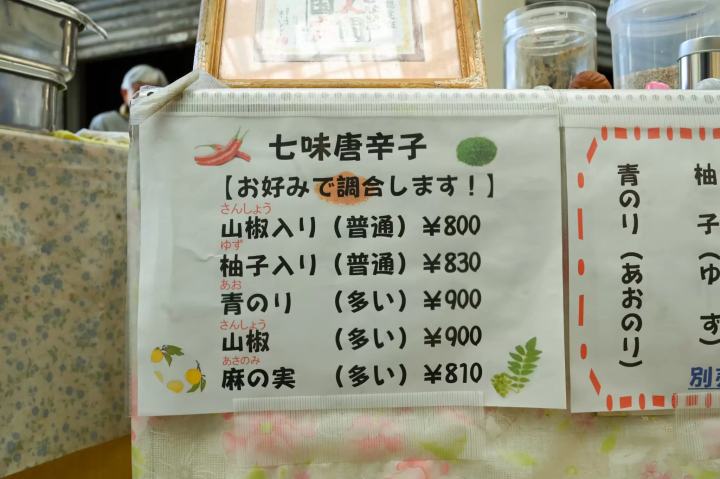 七味唐辛子
【お好みで調合します!】
さんしょう
山椒入り(普通)¥800
ゆず
柚子入り(普通)¥830
あお
青のり (多い)¥900
さんしょう
山椒 (多い)¥900
あさのみ
麻の実 (多い)¥810
柚子(ゆず)
青のり(あおのり)